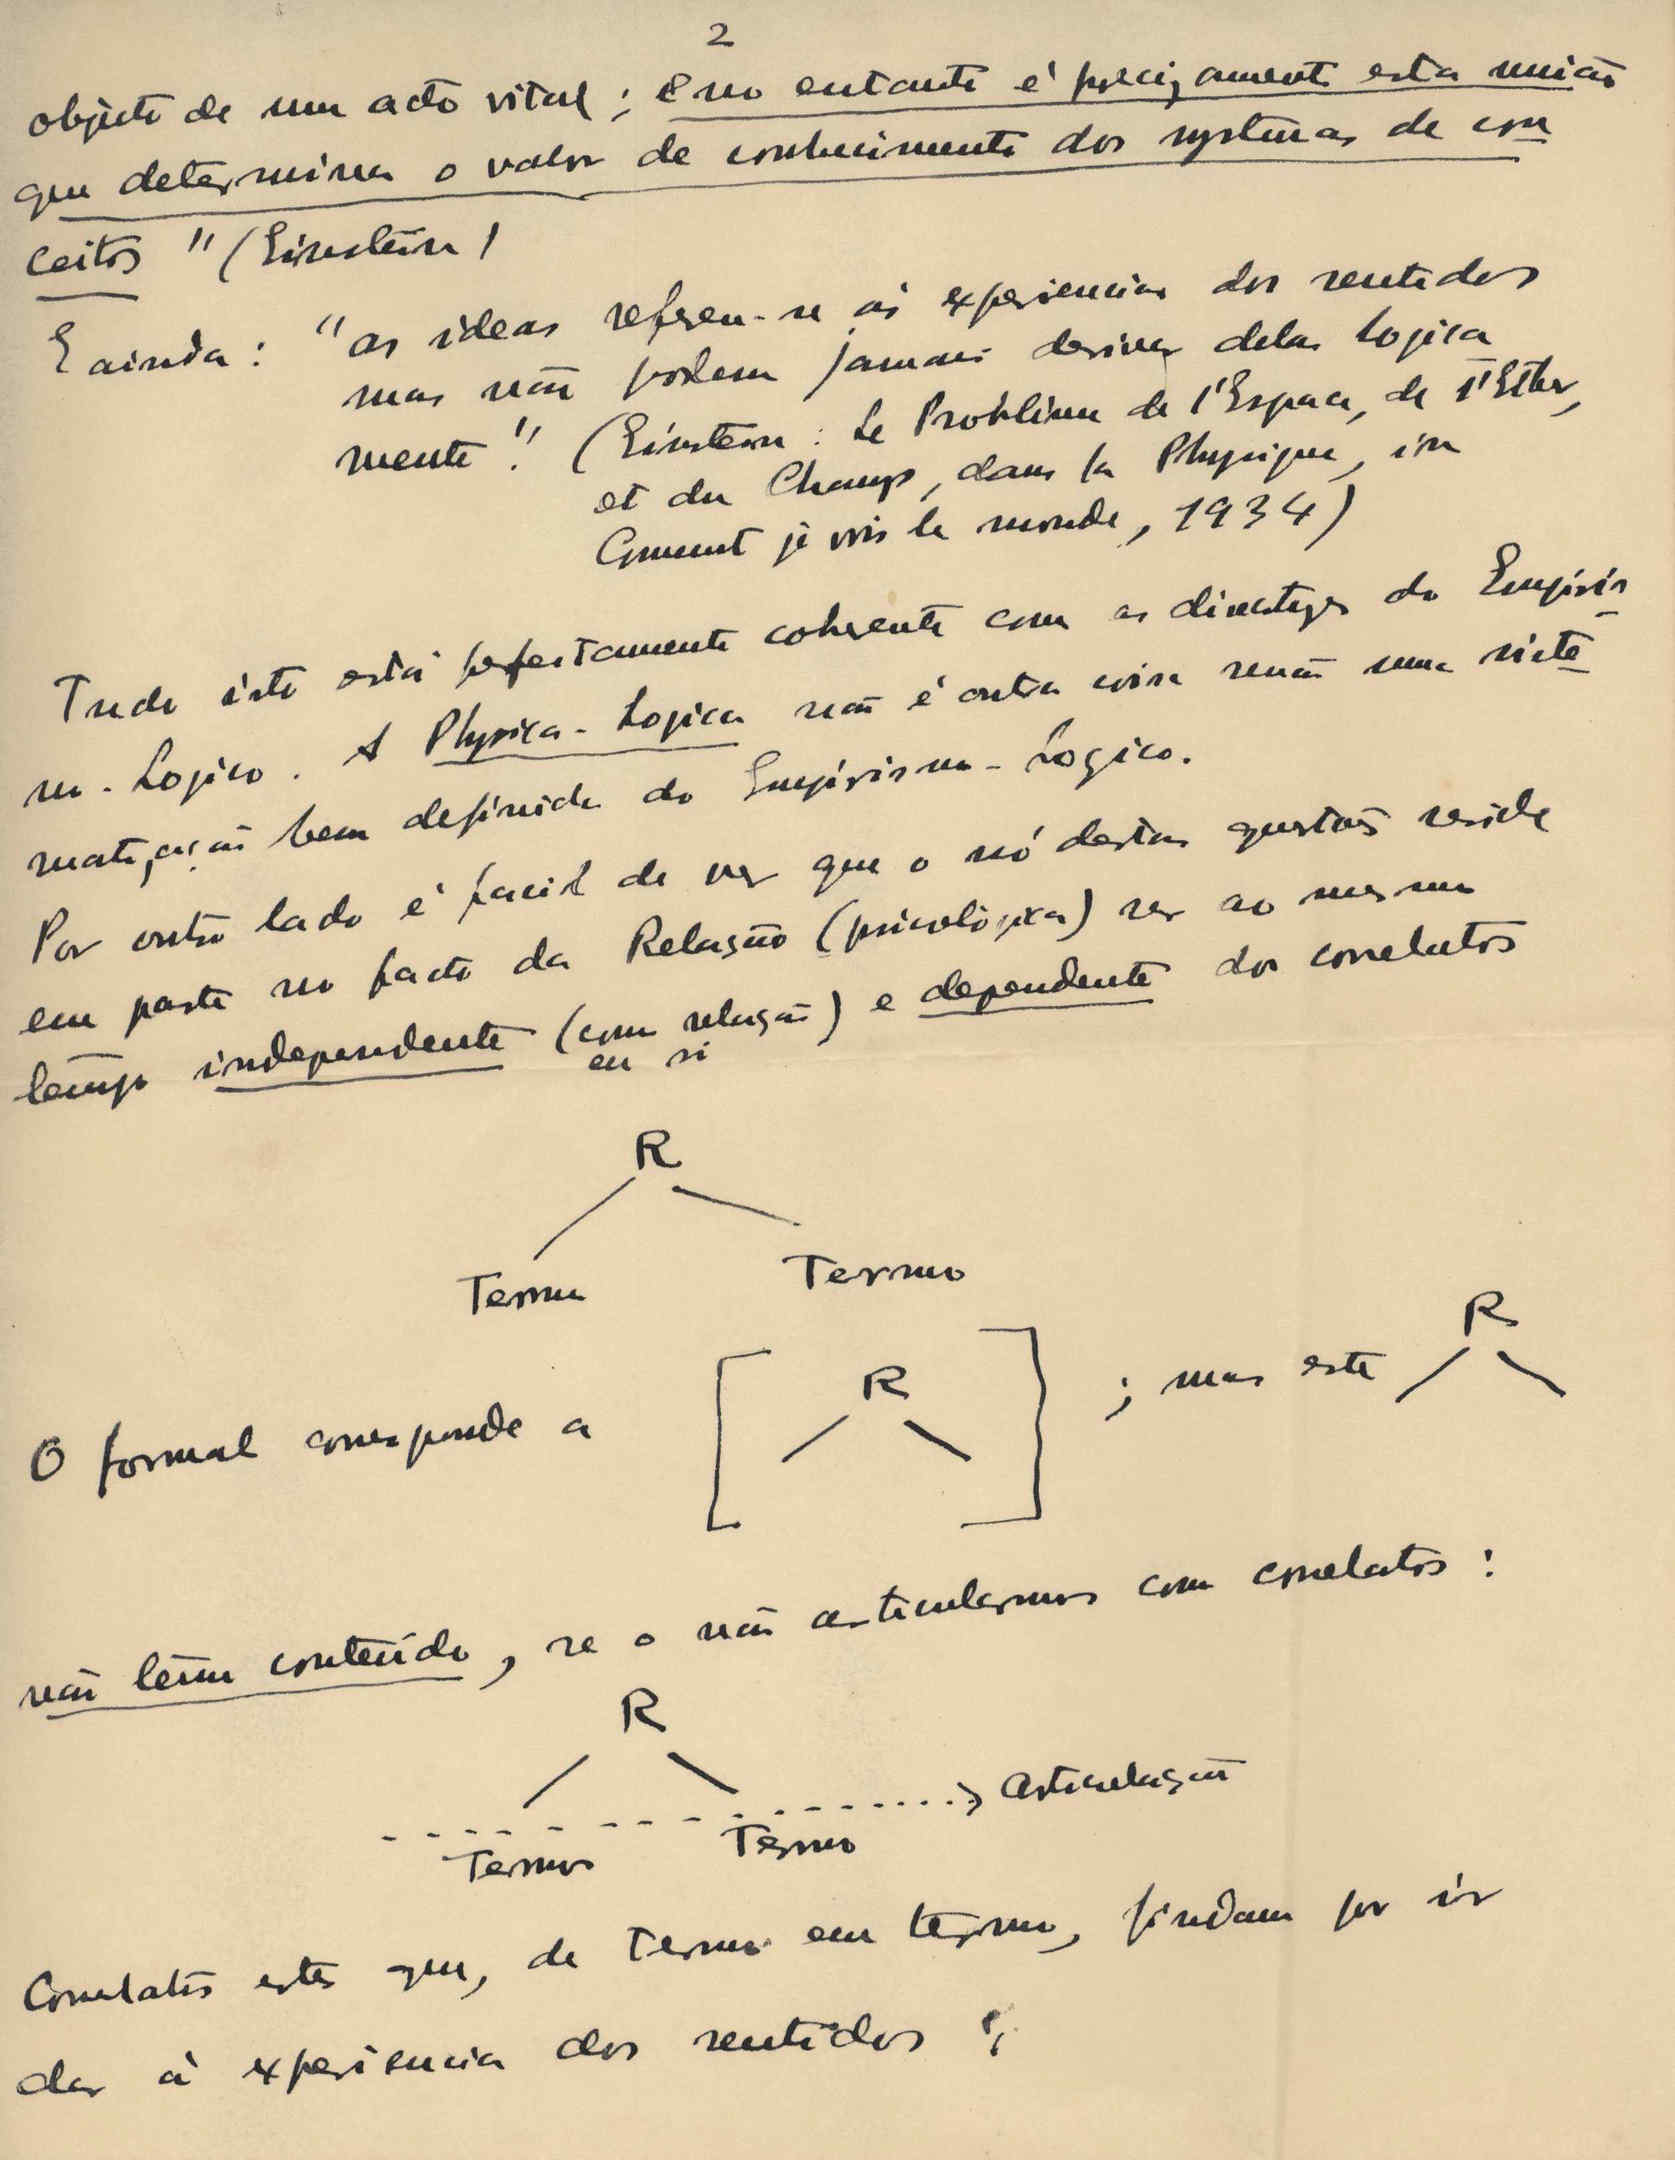 2
objecto de um acto vital; e no entanto é precizamente esta união
que determina o valor de conhecimento dos systemas de con
ceitos" (Einstein)
E ainda: "as ideas referem-se ás experiencias dos sentidos
mas não podem jamais derivar delas logica
mente". (Einstein: Le Problème de l'Espace, de l'Ether,
et du Champ, dans la Physique, in
Comment je vois le monde, 1934)
Tudo isto está perfeitamente coherente com as directizes do Empiris
mo-Logico. A Physica-Logica não é outra coisa senão uma siste
matização bem definida do Empirismo-Logico.
Por outro lado é facil de ver que o nó destas questões reside
em parte no facto da Relação (psicológica) ser ao mesmo
tempo independente (com relação) e dependente dos correlatos
em si
R
Termo Termo
O formal corresponde a [ R ] ; mas este R
não tem conteúdo, se o não articularmos com correlatos:
R
Articulação
Termo Termo
Correlatos estes que, de termo em termo, findam por ir
dar à experiencia dos sentidos;